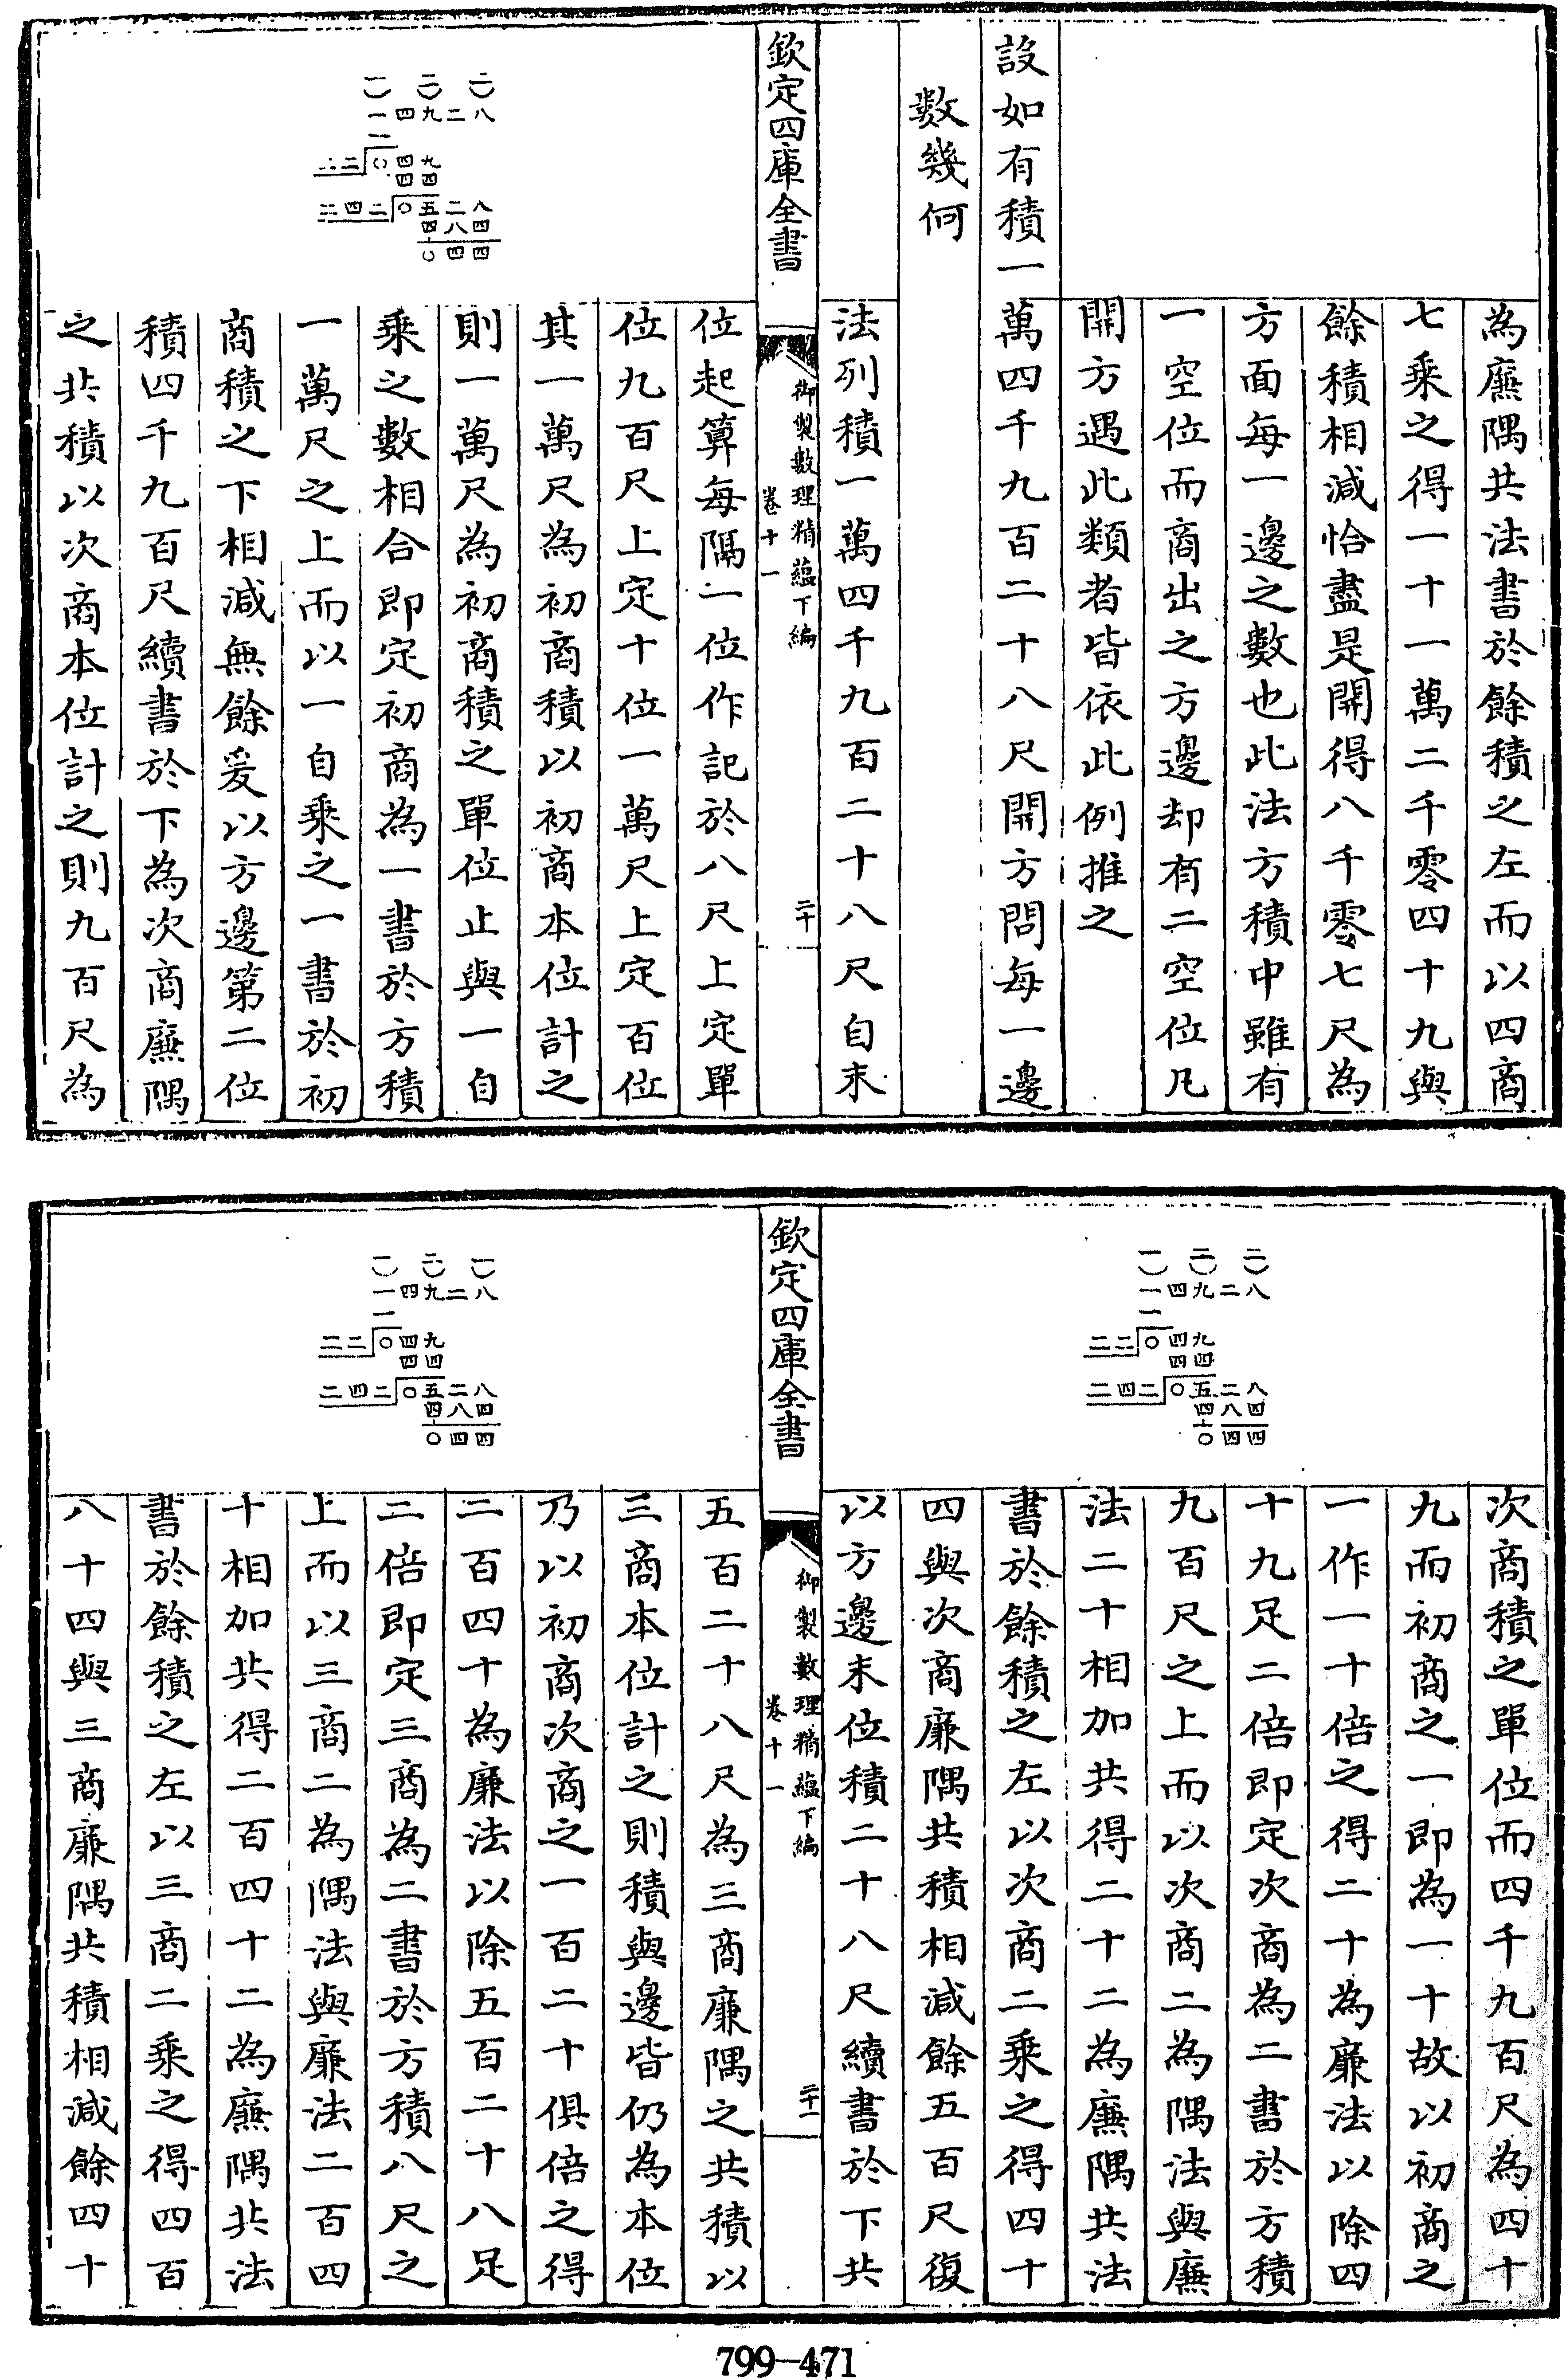 為廉隅共法書於餘積之左而以四商
七乘之得一十一萬二千零四十九與
餘積相減恰盡是開得八千零七尺為
方面每一邊之數也此法方積中雖有
一空位而商出之方邊却有二空位凡
開方遇此類者皆依此例推之
設如有積一萬四千九百二十八尺開方問每一邊
數幾何
法列積一萬四千九百二十八尺自末
欽定四庫全書
御製數理精蘊下編
卷十一
二十
位起算每隔一位作記於八尺上定單
位九百尺上定十位一萬尺上定百位
其一萬尺為初商積以初商本位計之
則一萬尺為初商積之單位止與一自
乘之數相合即定初商為一書於方積
一萬尺之上而以一自乘之一書於初
商積之下相減無餘爰以方邊第二位
積四千九百尺續書於下為次商廉隅
之共積以次商本位計之則九百尺為
一 二 二
一四九二八
一
二二 〇四九
四四
二四二 〇五二八
四八四
〇四四
次商積之單位而四千九百尺為四十
九而初商之一即為一十故以初商之
一作一十倍之得二十為廉法以除四
十九足二倍即定次商為二書於方積
九百尺之上而以次商二為隅法與廉
法二十相加共得二十二為廉隅共法
書於餘積之左以次商二乘之得四十
四與次商廉隅共積相減餘五百尺復
以方邊末位積二十八尺續書於下共
一 二 二
一四九二八
一
二二 〇四九
四四
二四二 〇五二八
四八四
〇四四
欽定四庫全書
御製數理精蘊下編
卷十一
二十一
五百二十八尺為三商廉隅之共積以
三商本位計之則積與邊皆仍為本位
乃以初商次商之一百二十俱倍之得
二百四十為廉法以除五百二十八足
二倍即定三商為二書於方積八尺之
上而以三商二為隅法與廉法二百四
十相加共得二百四十二為廉隅共法
書於餘積之左以三商二乘之得四百
八十四與三商廉隅共積相減餘四十
一 二 一
一四九二八
一
二二 〇四九
四四
二四二 〇五二八
四八四
〇四四
799-471